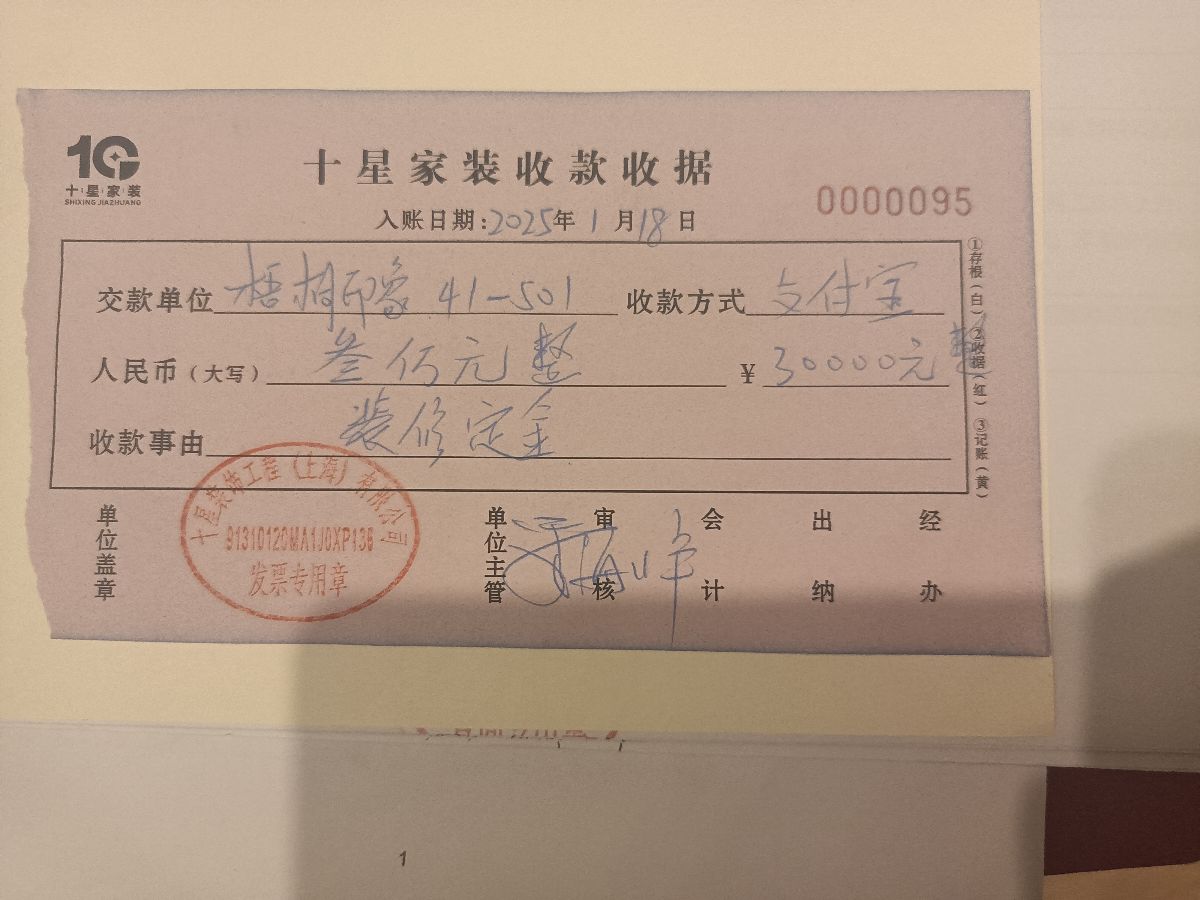 十星家装
SHIXING JIAZHUANG
十星家装收款收据
0000095
入账日期:2025年1月18日
交款单位 梧桐印象 41-501 收款方式 支付宝
人民币(大写) 叁仟元整 ¥ 30000元整
收款事由 装修定金
①存根(白)②收据(红)③记账(黄)
十星装饰工程(上海)有限公司
91310120MA1J0XP136
发票专用章
单位盖章 单位主管 审核 会计 出纳 经办
海峰
1